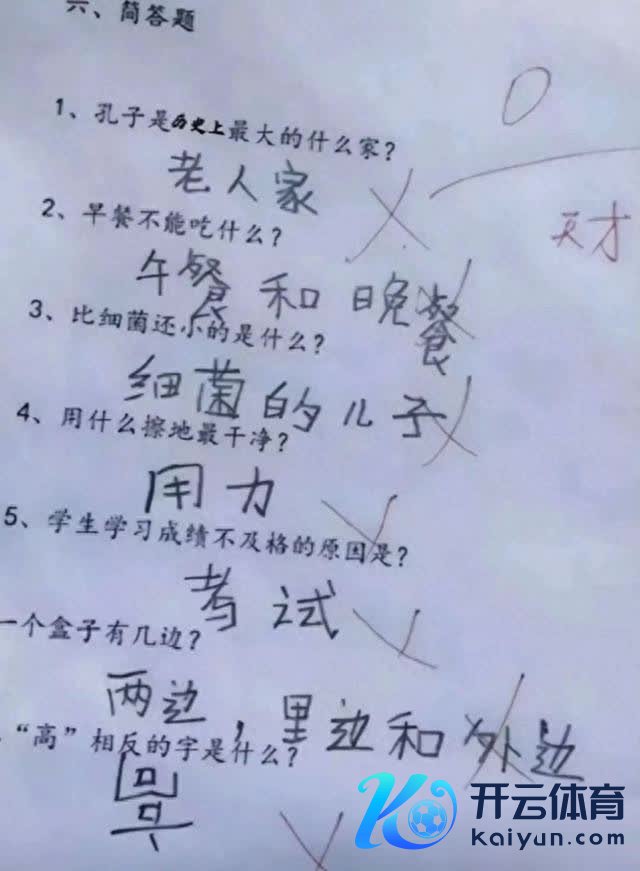 六、简答题
0
1、孔子是历史上最大的什么家?
老人家
天才
2、早餐不能吃什么?
午餐和晚餐
3、比细菌还小的是什么?
细菌的儿子
4、用什么擦地最干净?
用力
5、学生学习成绩不及格的原因是?
考试
一个盒子有几边?
两边,里边和外边
“高”相反的字是什么?
开云体育
kaiyun.com